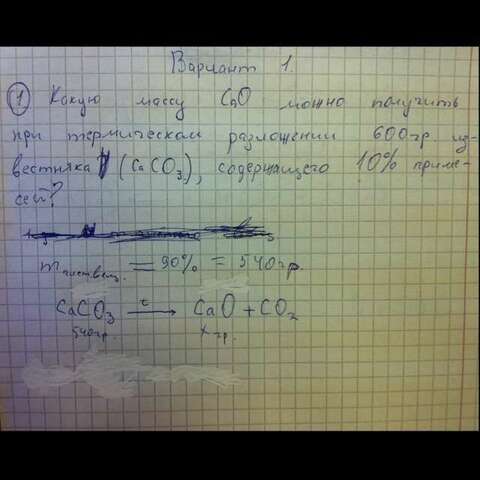 Вариант 1.
① Какую массу CaO можно получить
при термическом разложении 600гр. из-
вестняка (CaCO₃), содержащего 10% приме-
сей?
m чист.вещ. = 90% = 540гр.
CaCO₃ —t→ CaO + CO₂
540гр. x гр.